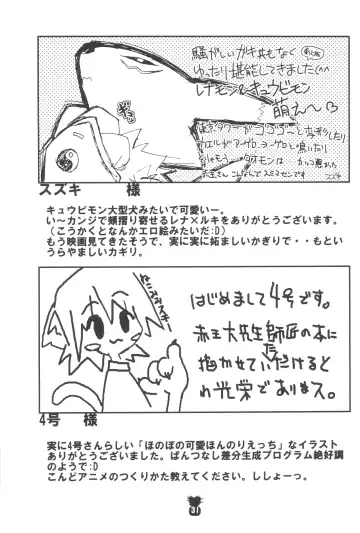 騒がしいガキ共もなく
ゆったり堪能してきました(^^
レナモン&キュウビモン
萌え〜
東京タワーがゴゴゴーと変形したり
スズキ
スズキ　様
キュウビモン大型犬みたいで可愛いー。
いーカンジで頬摺り寄せるレナ×ルキをありがとうございます。
(こうかくとなんかエロ絵みたいだ:D)
もう映画見てきたそうで、実に実に妬ましいかぎりで・・もとい
うらやましいカギリ。
はじめまして4号です。
赤王大先生師匠の本に
描かせていただけると
わ光栄でありまス。
4号　様
実に4号さんらしい「ほのぼの可愛ほんのりえっち」なイラスト
ありがとうございました。ぱんつなし差分生成プログラム絶好調
のようで:D
こんどアニメのつくりかた教えてください。ししょーっ。
31